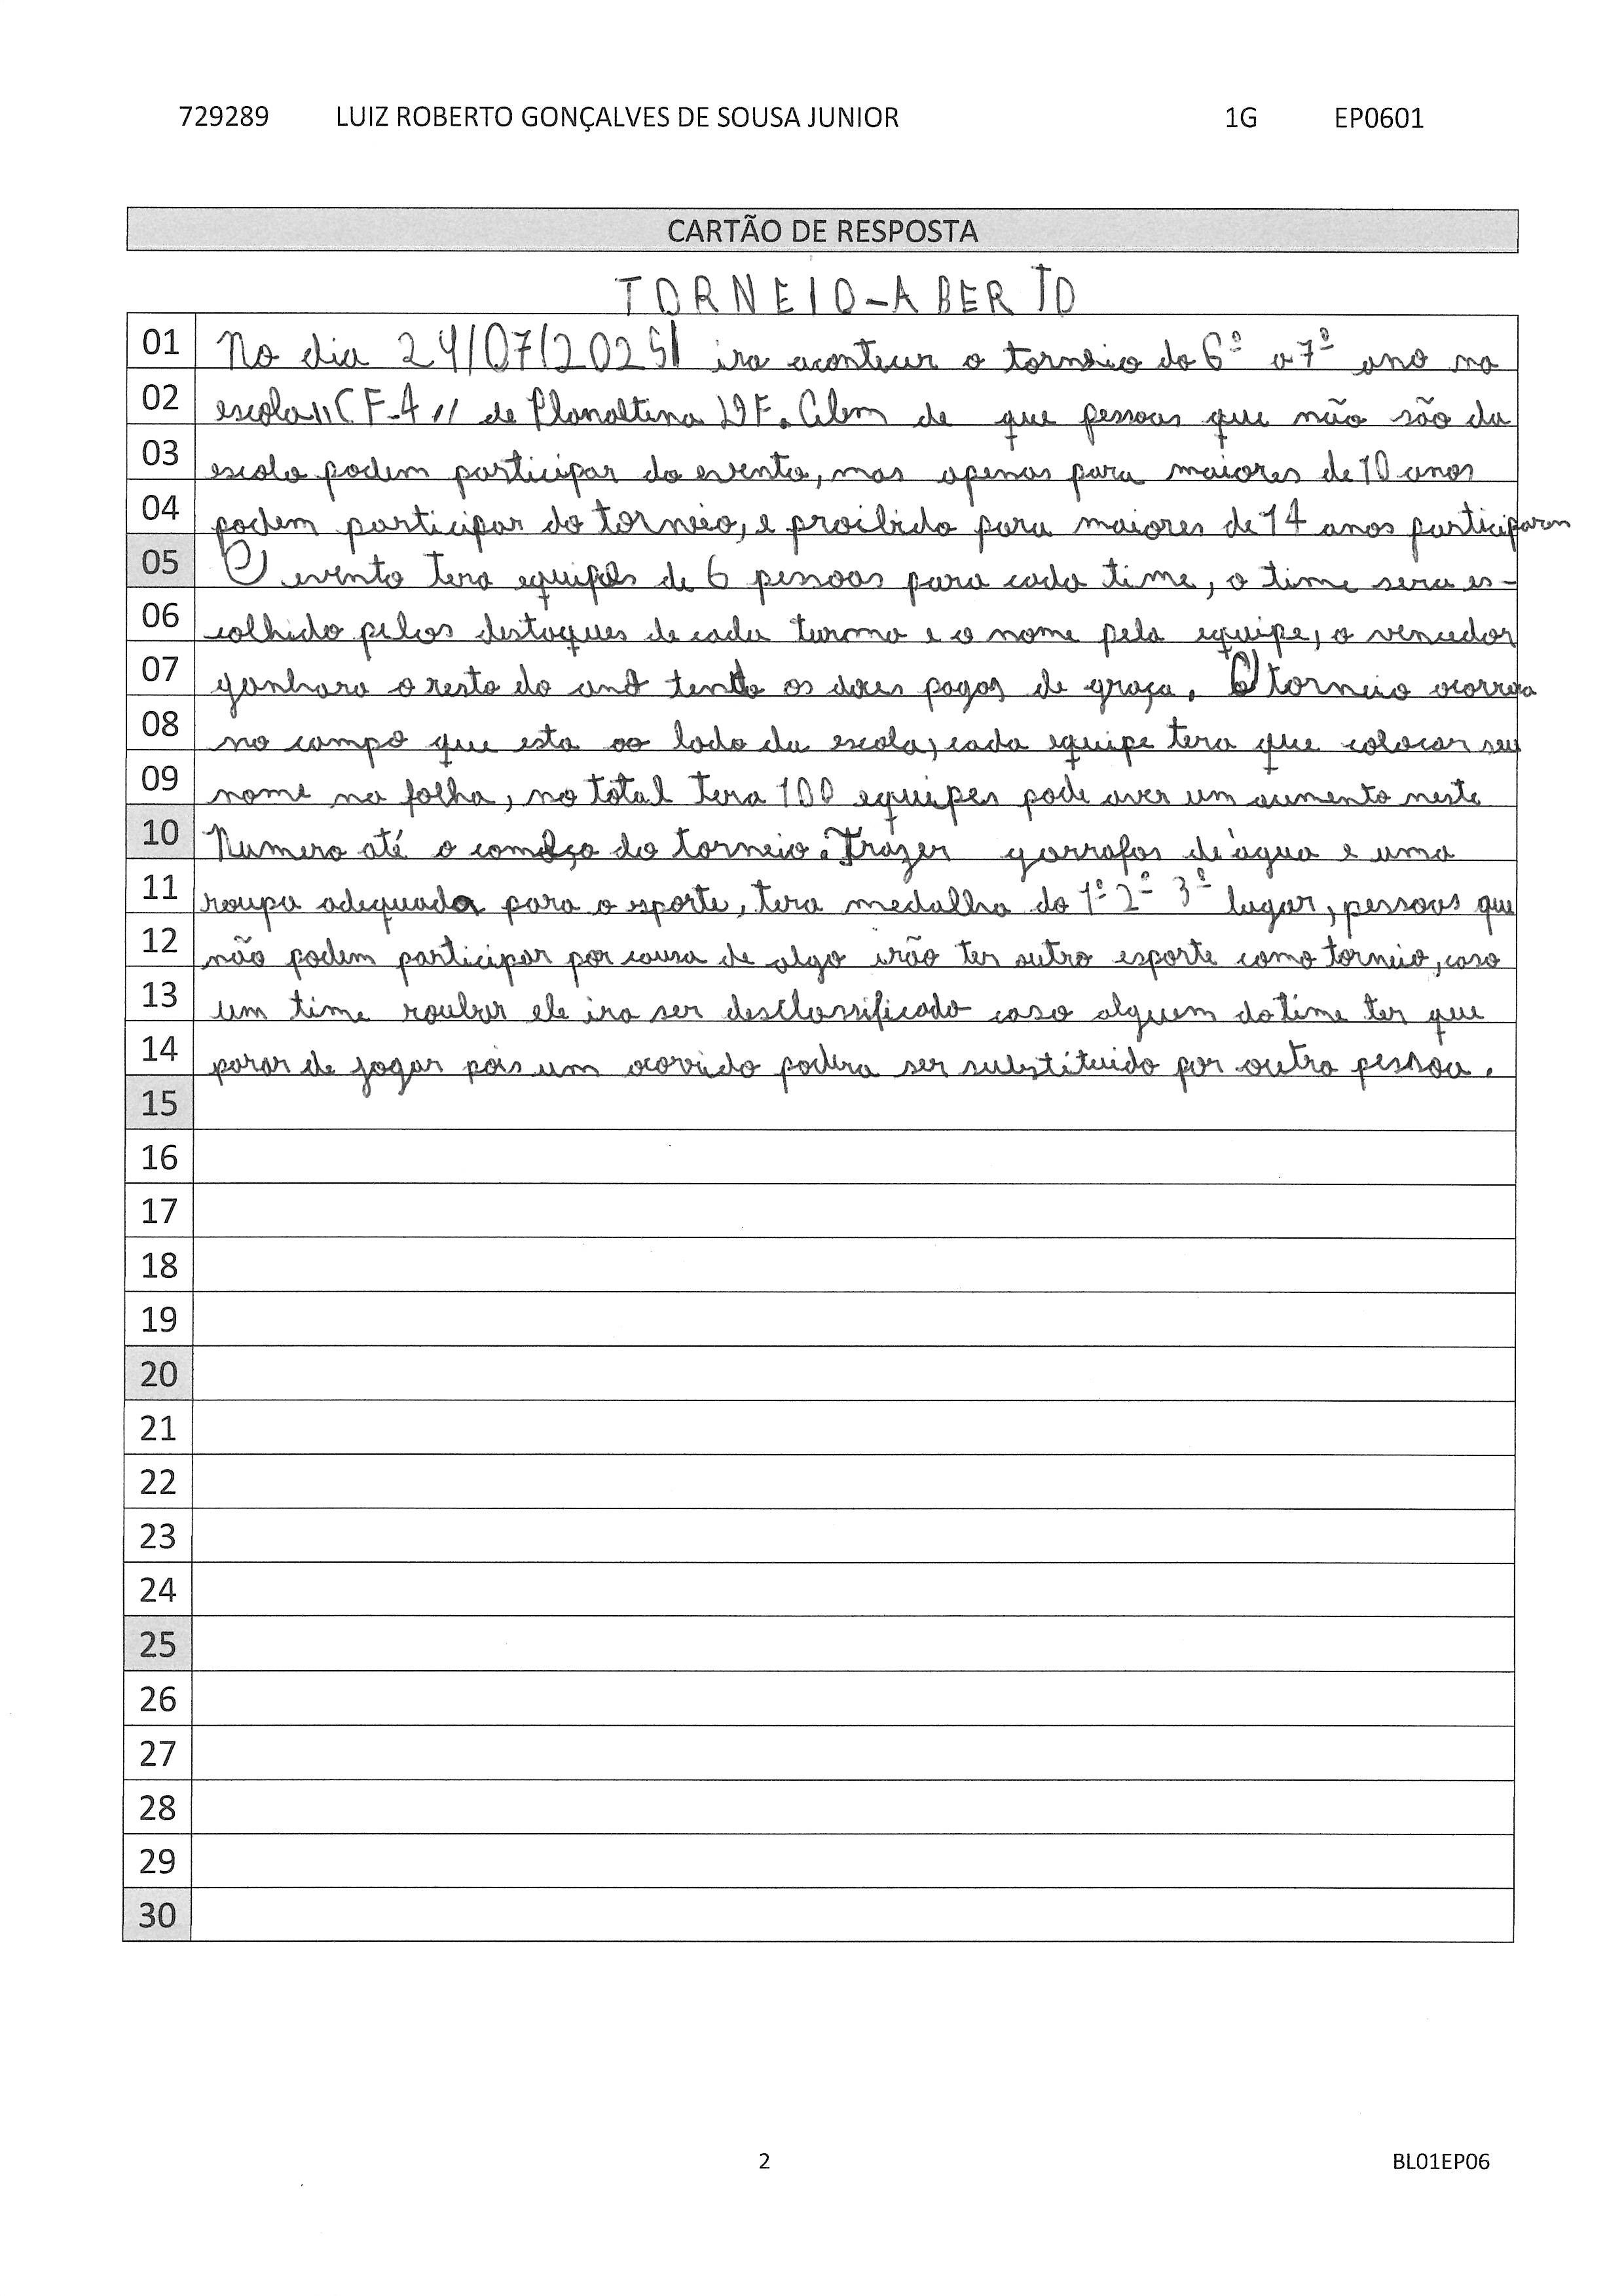 729289 LUIZ ROBERTO GONÇALVES DE SOUSA JUNIOR 1G EP0601
CARTÃO DE RESPOSTA
TORNEIO-ABERTO
01 No dia 24/07/2025 ira acontecer o torneio do 6º a 7º ano na
02 escola "CF-4" de Planaltina DF. Alem de que pessoas que não são da
03 escola podem participar do evento, mas apenas para maiores de 10 anos
04 podem participar do torneio, e proibido para maiores de 14 anos participarem
05 O evento tera equipes de 6 pessoas para cada time, o time sera es-
06 colhido pelos destaques de cada turma e o nome pela equipe, o vencedor
07 ganhara o resto do ano tendo os doces pagos de graça. O torneio ocorrera
08 no campo que esta ao lado da escola, cada equipe tera que colocar seu
09 nome na folha, no total tera 100 equipes pode aver um aumento neste
10 Numero até o começo do torneio. Trazer garrafas de água e uma
11 roupa adequada para o esporte, tera medalha do 1º 2º 3º lugar, pessoas que
12 não podem participar por causa de algo irão ter outro esporte como torneio, caso
13 um time roubar ele ira ser desclassificado caso alguem do time ter que
14 parar de jogar pois um ocorrido podera ser substituido por outra pessoa.
15
16
17
18
19
20
21
22
23
24
25
26
27
28
29
30
2 BL01EP06